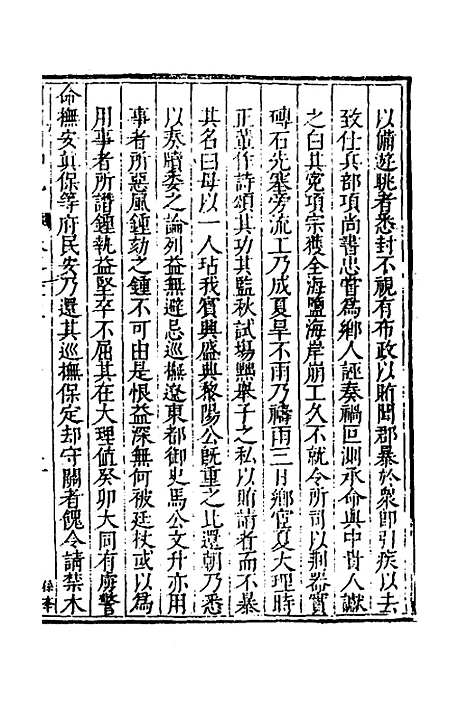 以備遊眺者悉封不視有布政以賄聞郡暴於衆即引疾以去
致仕兵部項尚書忠嘗爲鄉人誣奏禍叵測承命與中貴人讞
之白其寃項宗獲全海鹽海岸崩工久不就令所司以剩器實
磚石先塞旁流工乃成夏旱不雨乃禱雨三日鄉宦夏大理時
正輩作詩頌其功其監秋試場斃舉子之私以賄請者而不暴
其名曰毋以一人玷我賓興盛典黎陽公旣重之比還朝乃悉
以奏牘委之論列益無避忌巡撫遼東都御史馬公文升亦用
事者所惡風鍾劾之鍾不可由是恨益深無何被廷杖或以爲
用事者所譖鍾執益堅卒不屈其在大理值癸卯大同有虜警
命撫安眞保等府民安乃還其巡撫保定却守關者餽令請禁木